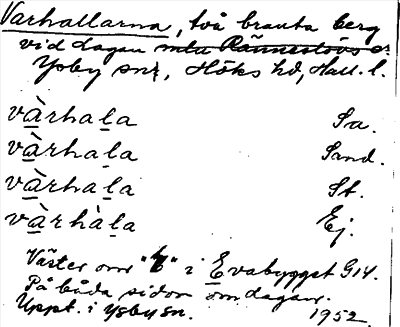 Varhallarna, två branta berg
vid dagan mlu Rännestövs o.
Ysby snr, Höks hd, Hall. l.
vå̱̀rhaḻa Sa.
vå̱̀rhaḻa Sand.
vå̱̀rhaḻa St.
vå̱̀rhàḻa Ej.
Väster om "b" i Evabygget G14.
På båda sidor om dagan.
Uppt. i Ysby sn. 1952.